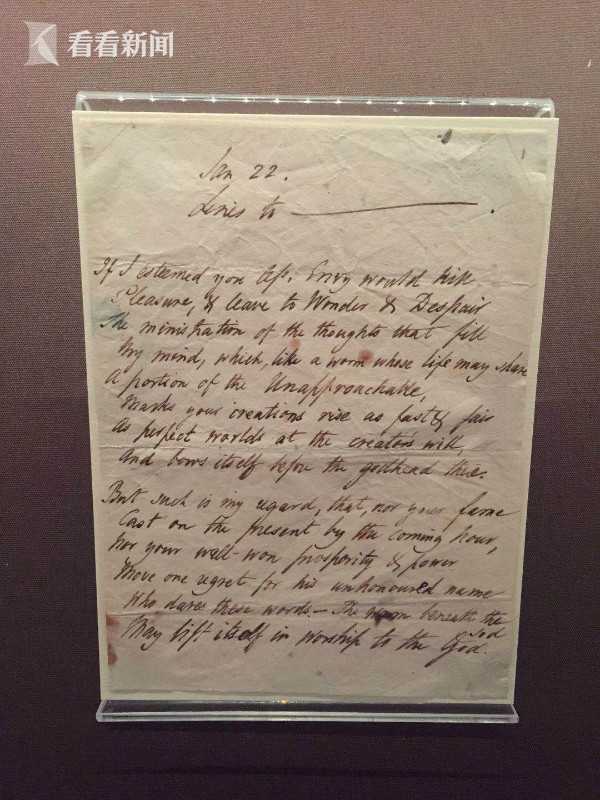 看看新闻
Jan 22.
Lines to ———.
If I esteemed you less, Envy would kill
Pleasure, & leave to Wonder & Despair
The ministration of the thoughts that fill
My mind, which, like a worm whose life may share
A portion of the Unapproachable,
Marks your creations rise as fast & fair
As perfect worlds at the creators will,
And bows itself before the godhead there.
But such is my regard, that, nor your fame
Cast on the present by the coming hour,
Nor your well-won prosperity & power
Move one regret for his unhonoured name
Who dares these words.— The worm beneath the
sod
May lift itself in worship to the God.